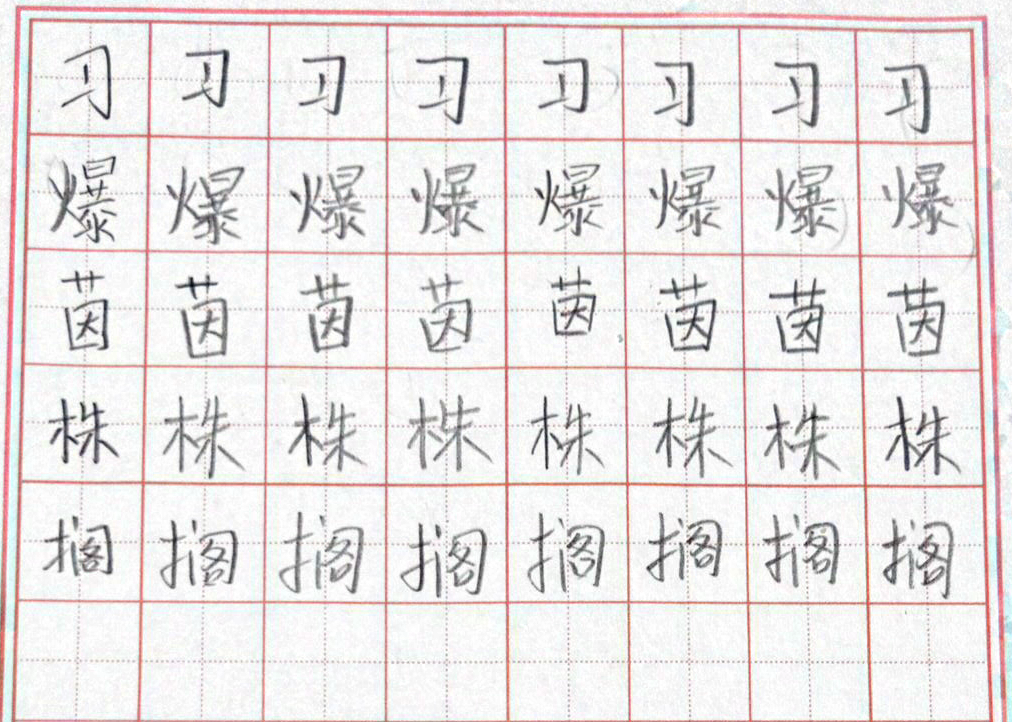 习习习习习习习习
爆爆爆爆爆爆爆爆
茵茵茵茵茵茵茵茵
株株株株株株株株
搁搁搁搁搁搁搁搁